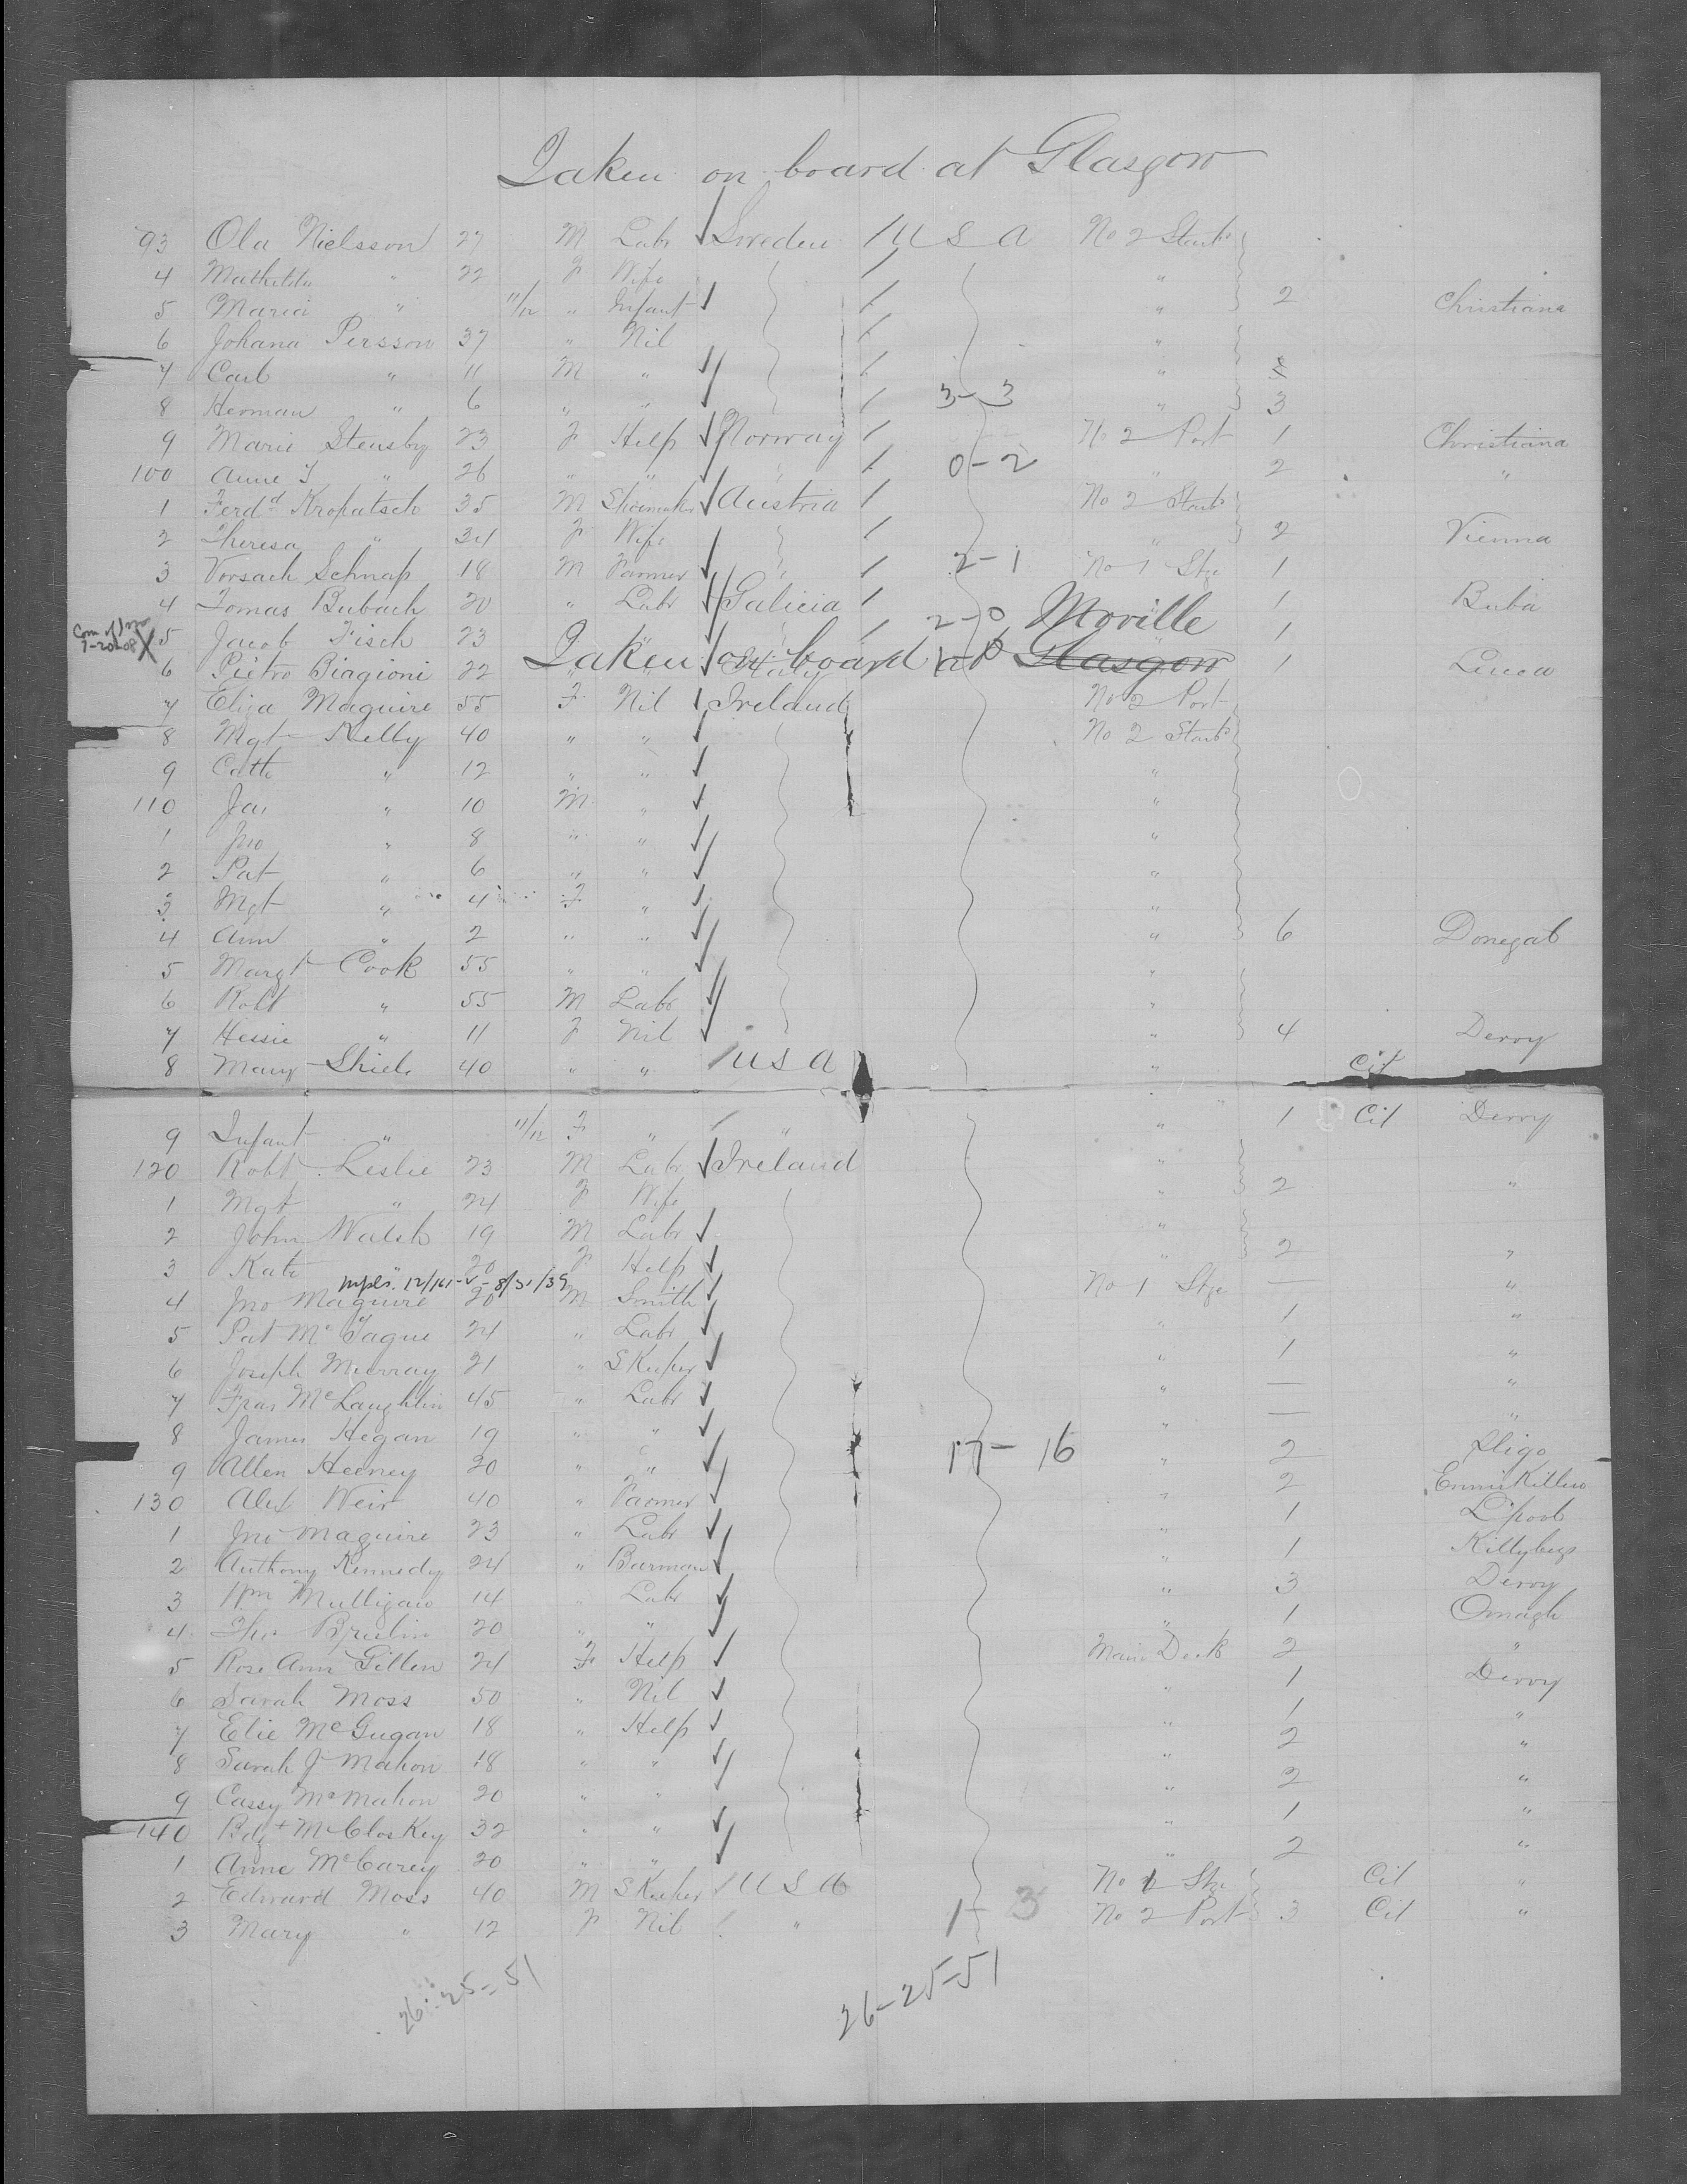 Taken on board at Glasgow
93 Ola Nielsson 27 M Labr Sweden U S A No 2 Starbd
4 Mathilda " 22 F Wife "
5 Maria " 11/12 " Infant " 2 Christiana
6 Johana Persson 37 " Nil "
7 Carl " 11 M " "
8 Herman " 6 " " 3-3 " 3
9 Marie Stensby 23 F Help Norway No 2 Port 1 Christiana
100 Anne T " 26 " " " 0-2 " 2 "
1 Ferdd Kropatsch 35 M Shoemaker Austria No 2 Starbd
2 Theresa " 34 F Wife " 2 Vienna
3 Vorsach Schnap 18 M Farmer " 2-1 No 1 Stge 1
4 Tomas Bubach 20 " Labr Galicia " 1 Buba
Com of Imm
7-20-08 X
5 Jacob Fisch 23 " " 2-0 " 1
Moville
Taken on board at Glasgow
6 Pietro Biagioni 22 " " Italy 1-0 1 Lucca
7 Eliza Maguire 55 F Nil Ireland No 2 Port
8 Mgt Kelly 40 " " No 2 Starbd
9 Cath " 12 " " "
110 Jas " 10 M " "
1 Jno " 8 " " "
2 Pat " 6 " " "
3 Mgt " 4 F " "
4 Ann " 2 " " " 6 Donegal
5 Margt Cook 55 " " "
6 Robt " 55 M Labr "
7 Hessie " 11 F Nil " 4 Derry
8 Mary Shiels 40 " " U S A " Cit
9 Infant " 11/12 F " " " 1 Cit Derry
120 Robt Leslie 23 M Labr Ireland "
1 Mgt " 24 F Wife " 2 "
2 John Walsh 19 M Labr "
3 Kate 20 F Help " 2 "
12/161-v-8/31/39
4 Jno Maguire 20 M Smith No 1 Stge — "
5 Pat McTague 24 " Labr " 1 "
6 Joseph Murray 21 " S Keeper " 1 "
7 Fras McLaughlin 45 " Labr " — "
8 James Hegan 19 " " " — "
9 Allen Heeney 20 " " 17-16 " 2 Sligo
130 Alex Weir 40 " Farmer " 2 Enniskillen
1 Jno Maguire 23 " Labr " 1 L'pool
2 Anthony Kennedy 24 " Barman " 1 Killybegs
3 Wm Mulligan 14 " Labr " 3 Derry
4 Thos Breslin 20 " " " 1 Omagh
5 Rose Ann Gillen 24 F Help Main Deck 2 "
6 Sarah Moss 50 " Nil " 1 Derry
7 Elie McGugan 18 " Help " 1 "
8 Sarah J Mahon 18 " " " 2 "
9 Cassy McMahon 20 " " " 2 "
140 Bdgt McCloskey 32 " " " 1 "
1 Anne McCarey 20 " " " 2 "
2 Edward Moss 40 M S Keeper U S A No 1 Stge Cit "
3 Mary " 12 F Nil " 1-3 No 2 Port 3 Cit "
26-25-51 26-25-51